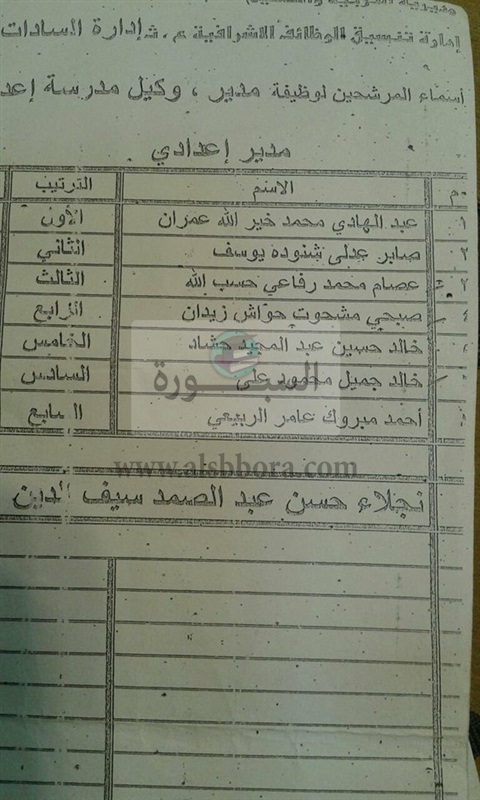 مديرية التربية والتعليم
إدارة تنسيق الوظائف الاشرافية م . ث إدارة السادات
أسماء المرشحين لوظيفة مدير ، وكيل مدرسة إعد
مدير إعدادي
م الاسم الترتيب
١ عبد الهادي محمد خير الله عمران الأول
٢ صابر عدلى شنوده يوسف الثاني
٣ عصام محمد رفاعي حسب الله الثالث
٤ صبحي مشحوت حواش زيدان الرابع
خالد حسين عبد المجيد حشاد الخامس
خالد جميل محمود على السادس
أحمد مبروك عامر الربيعي السابع
السبورة
www.alsbbora.com
نجلاء حسن عبد الصمد سيف الدين